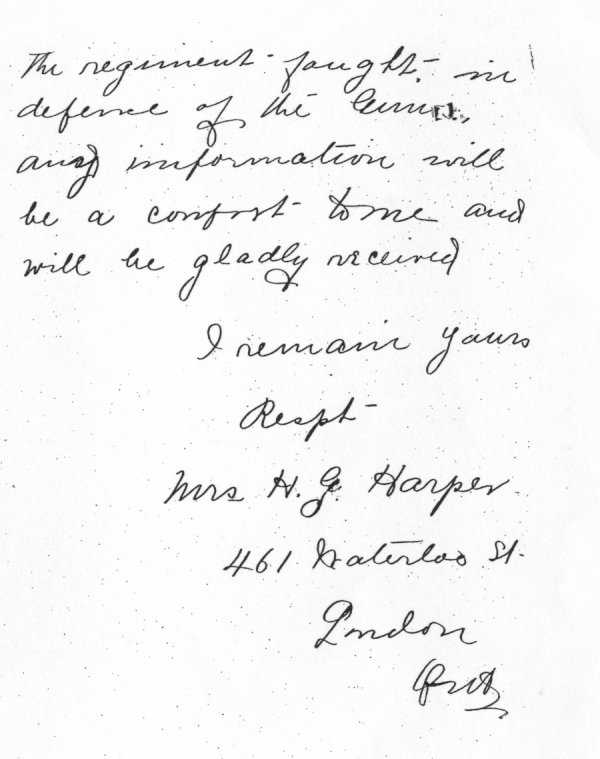 The regiment fought in
defence of the Guns,
any information will
be a comfort to me and
will be gladly received
I remain yours
Respt
Mrs H. G. Harper.
461 Waterloo St.
London
Ont